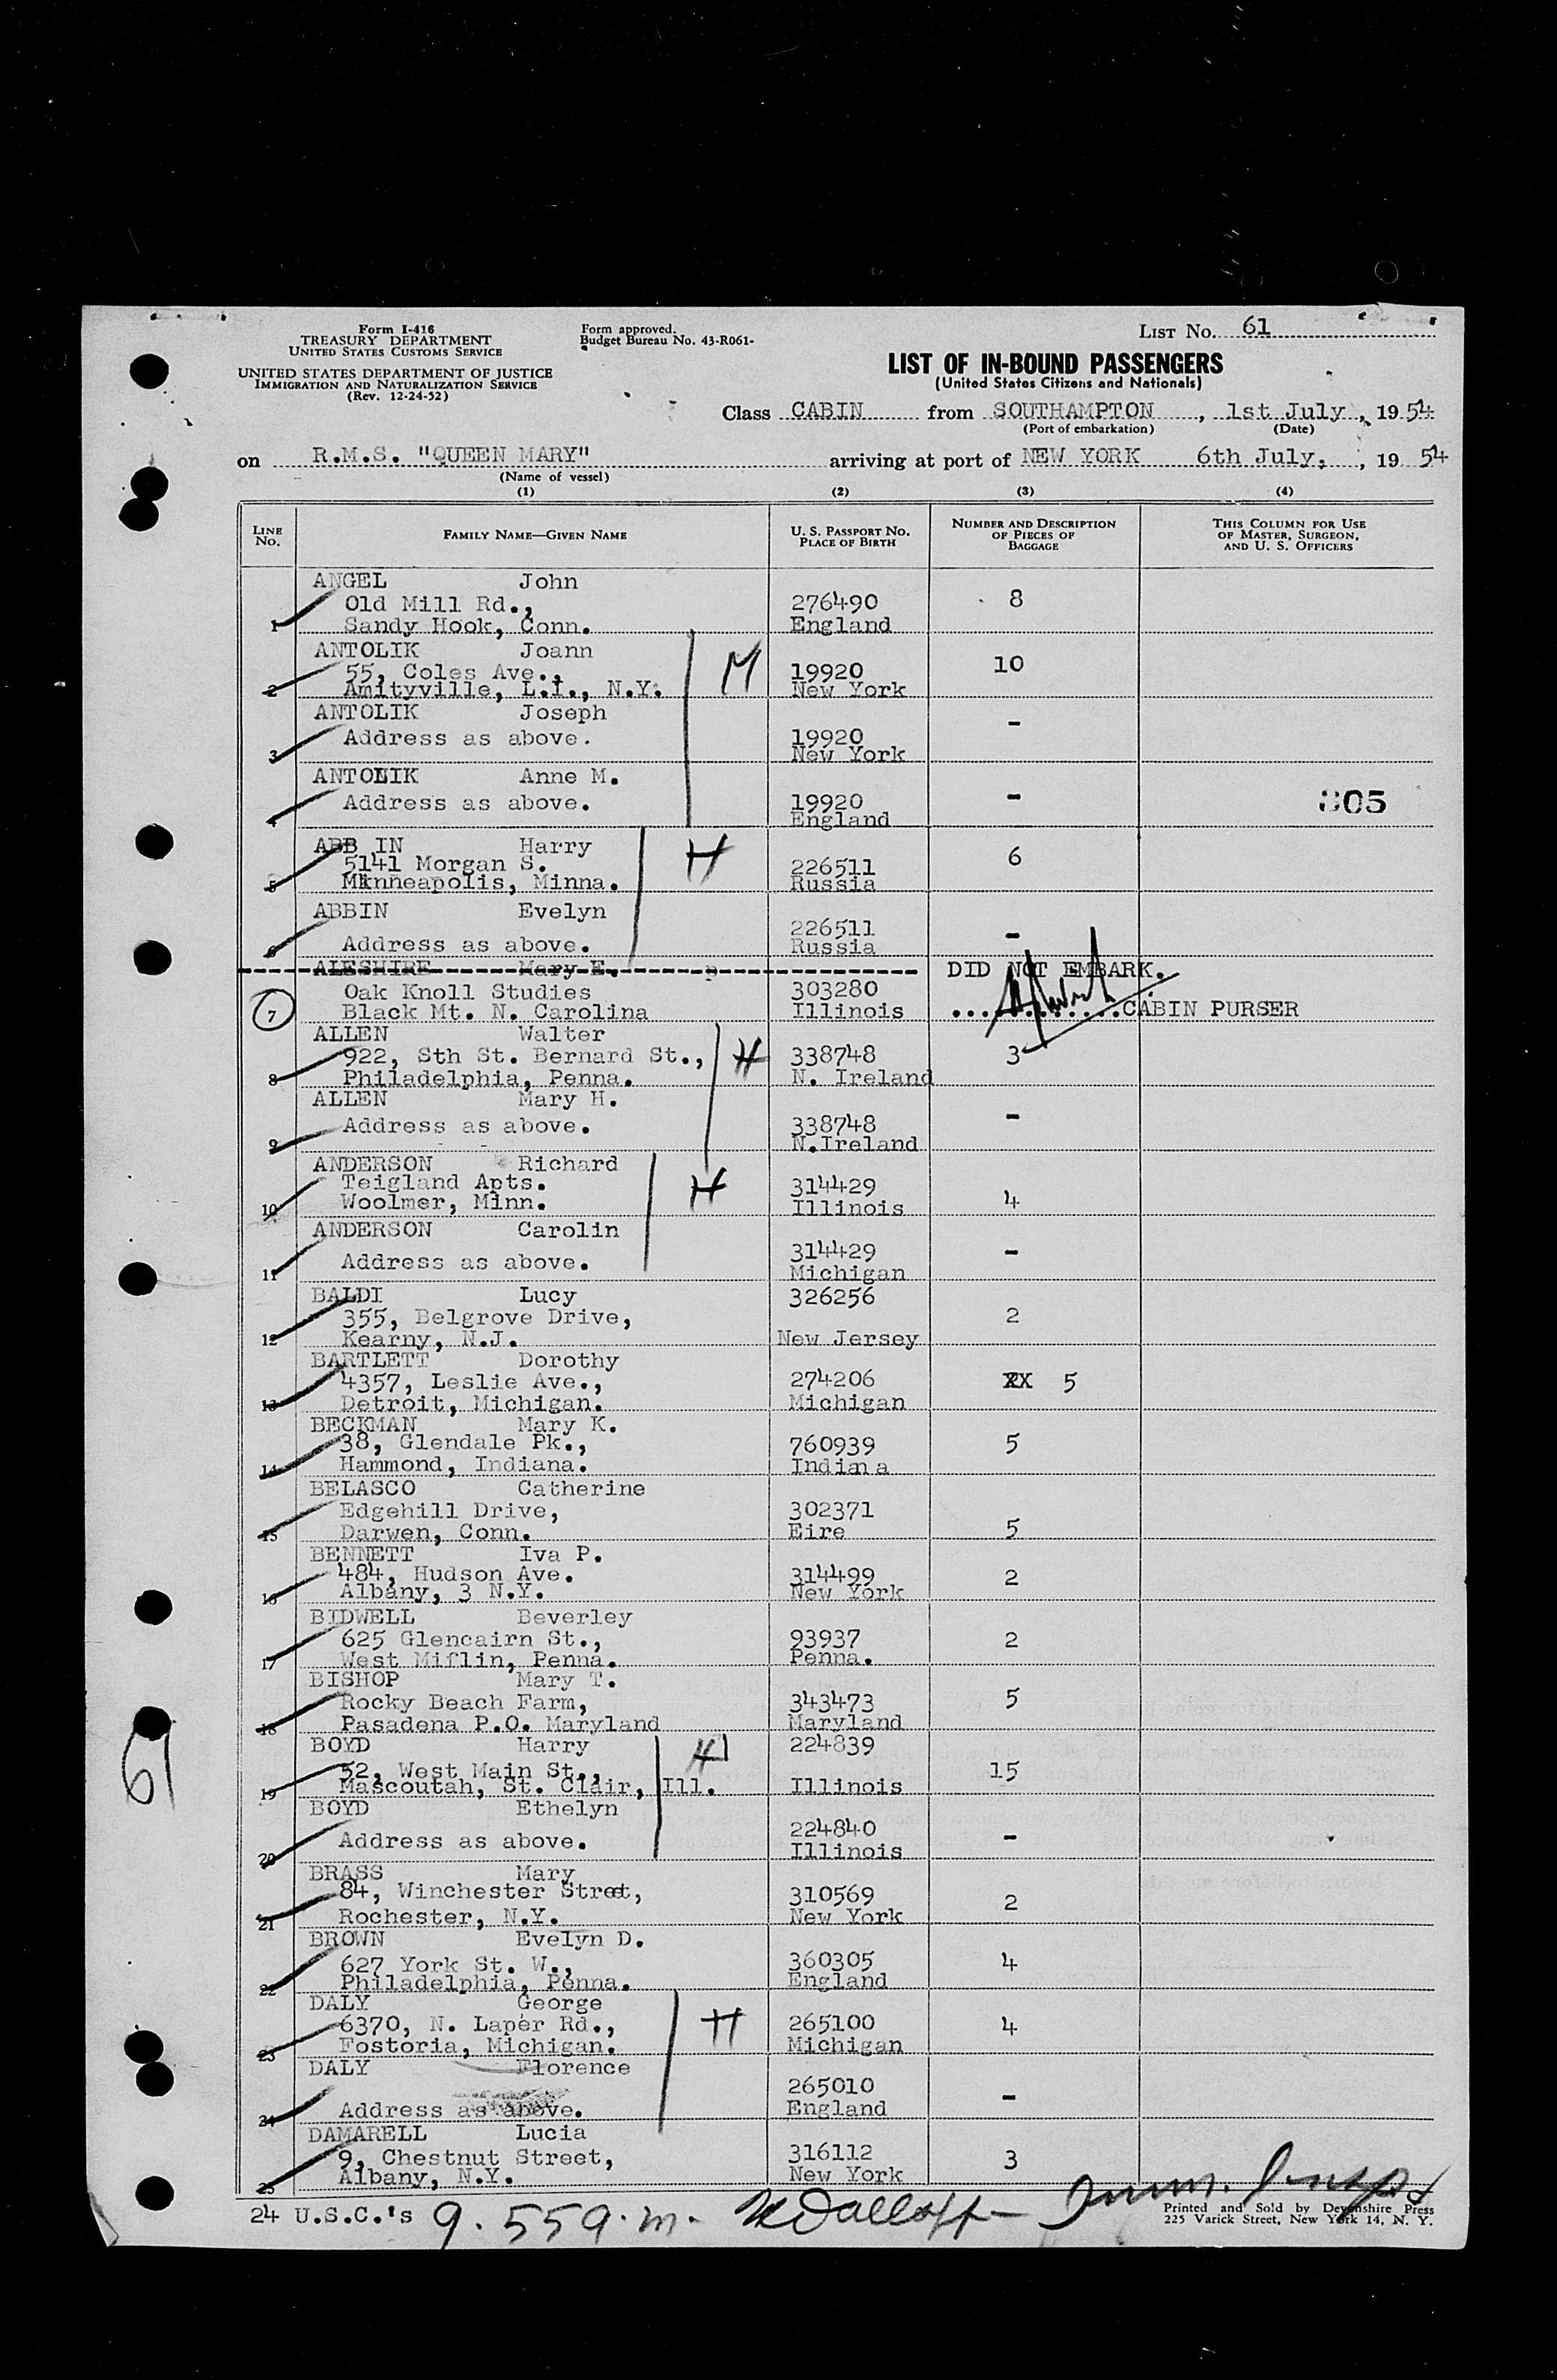 Form I-416
TREASURY DEPARTMENT
UNITED STATES CUSTOMS SERVICE
UNITED STATES DEPARTMENT OF JUSTICE
IMMIGRATION AND NATURALIZATION SERVICE
(Rev. 12-24-52)
Form approved.
Budget Bureau No. 43-R061-
LIST NO. 61
LIST OF IN-BOUND PASSENGERS
(United States Citizens and Nationals)
Class CABIN from SOUTHAMPTON, 1st July, 1954
(Port of embarkation) (Date)
on R.M.S. "QUEEN MARY" arriving at port of NEW YORK 6th July, , 19 54
(Name of vessel)
(1) (2) (3) (4)
LINE NO. FAMILY NAME—GIVEN NAME U. S. PASSPORT NO. PLACE OF BIRTH NUMBER AND DESCRIPTION OF PIECES OF BAGGAGE THIS COLUMN FOR USE OF MASTER, SURGEON, AND U. S. OFFICERS
ANGEL John
Old Mill Rd., 276490 8
1 Sandy Hook, Conn. England
ANTOLIK Joann M
55, Coles Ave., 19920 10
2 Amityville, L.I., N.Y. New York
ANTOLIK Joseph -
Address as above. 19920
3 New York
ANTOLIK Anne M.
Address as above. 19920 - 305
4 England
ABB IN Harry H
5141 Morgan S. 226511 6
5 Minneapolis, Minna. Russia
ABBIN Evelyn
226511 -
6 Address as above. Russia
ALESHIRE Mary E. DID NOT EMBARK.
Oak Knoll Studies 303280
7 Black Mt. N. Carolina Illinois CABIN PURSER
ALLEN Walter
922, Sth St. Bernard St., H 338748 3
8 Philadelphia, Penna. N. Ireland
ALLEN Mary H. -
Address as above. 338748
9 N.Ireland
ANDERSON Richard
Teigland Apts. H 314429
10 Woolmer, Minn. Illinois 4
ANDERSON Carolin
314429 -
11 Address as above. Michigan
BALDI Lucy 326256
355, Belgrove Drive, 2
12 Kearny, N.J. New Jersey
BARTLETT Dorothy
4357, Leslie Ave., 274206 XX 5
13 Detroit, Michigan. Michigan
BECKMAN Mary K.
38, Glendale Pk., 760939 5
14 Hammond, Indiana. Indiana
BELASCO Catherine
Edgehill Drive, 302371
15 Darwen, Conn. Eire 5
BENNETT Iva P.
484, Hudson Ave. 314499 2
16 Albany, 3 N.Y. New York
BIDWELL Beverley
625 Glencairn St., 93937 2
17 West Miflin, Penna. Penna.
BISHOP Mary T.
Rocky Beach Farm, 343473 5
18 Pasadena P.O. Maryland Maryland
BOYD Harry H 224839
52, West Main St., 15
19 Mascoutah, St. Clair, Ill. Illinois
BOYD Ethelyn
224840 -
20 Address as above. Illinois
BRASS Mary
84, Winchester Street, 310569 2
21 Rochester, N.Y. New York
BROWN Evelyn D.
627 York St. W., 360305 4
22 Philadelphia, Penna. England
DALY George
6370, N. Laper Rd., H 265100 4
23 Fostoria, Michigan. Michigan
DALY Florence
265010 -
24 Address as above. England
DAMARELL Lucia
9, Chestnut Street, 316112 3
25 Albany, N.Y. New York
61
24 U.S.C.'s 9.55 a.m.
Printed and Sold by Devonshire Press
225 Varick Street, New York 14, N. Y.